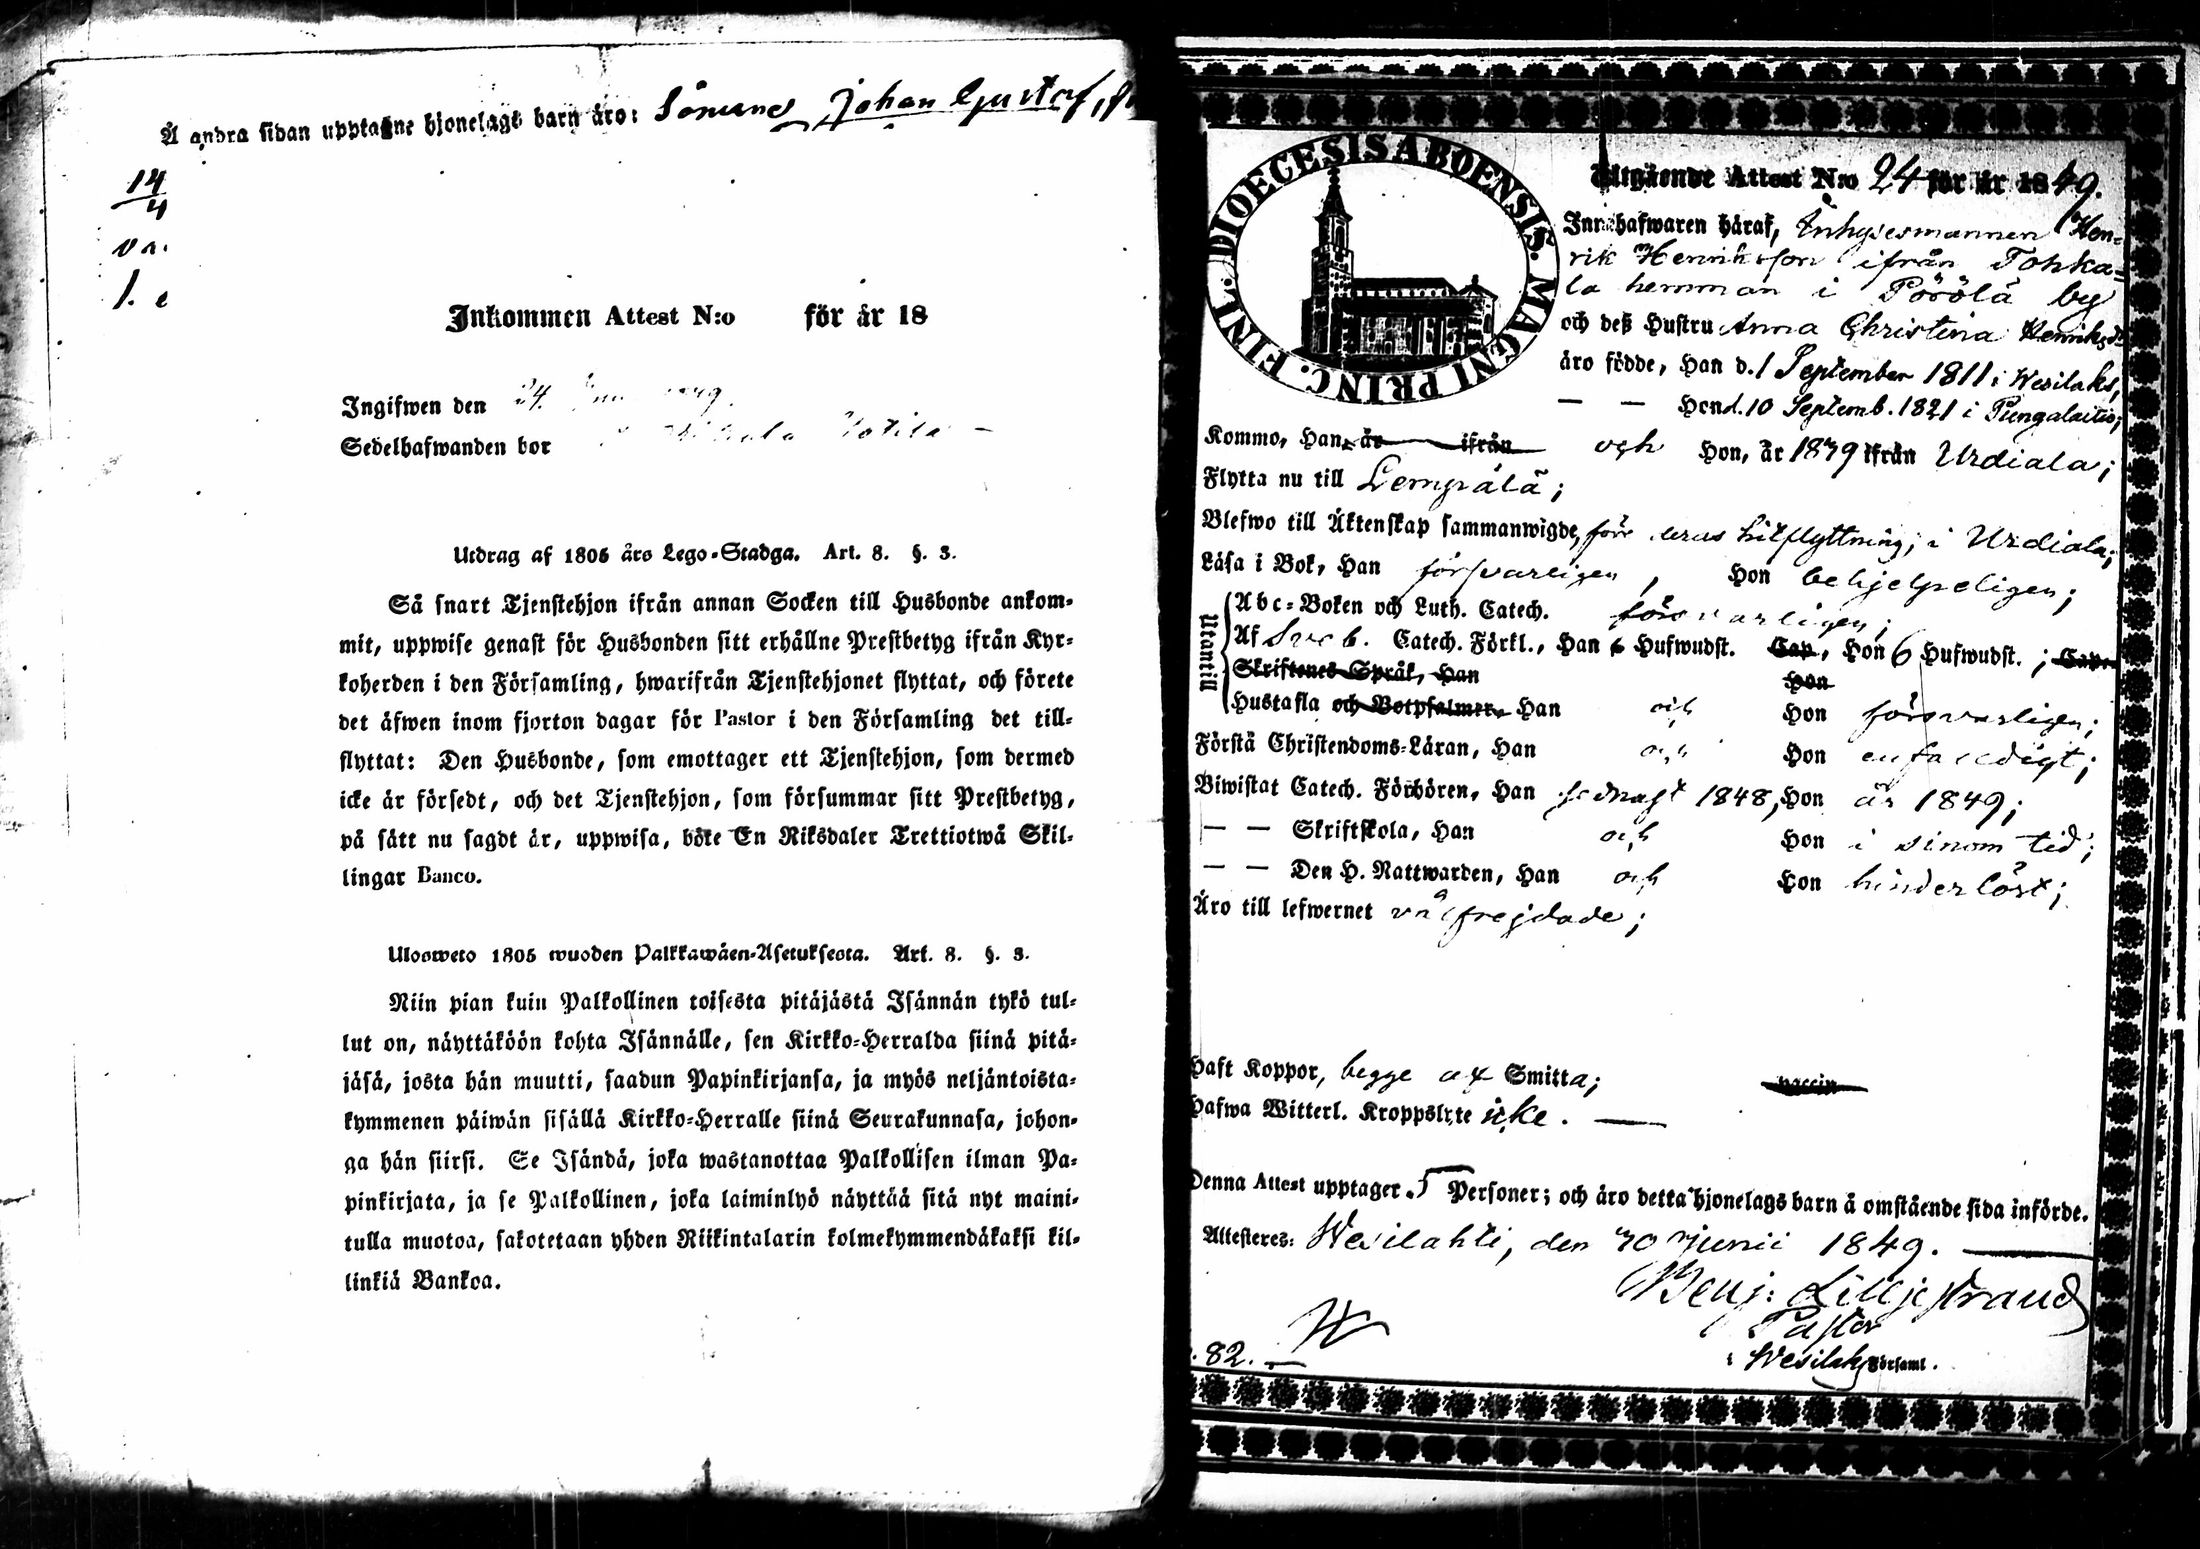 Å andra sidan upptagne hjonelags barn äro: Sönerne Johan Gustaf,
14
4
1.
Inkommen Attest N:o för år 18
Ingifwen den 24.
Sedelhafwanden bor
Utdrag af 1805 års Lego-Stadga. Art. 8. §. 3.
Så snart Tjenstehjon ifrån annan Socken till Husbonde ankom-
mit, uppwise genast för Husbonden sitt erhållne Prestbetyg ifrån Kyr-
koherden i den Församling, hwarifrån Tjenstehjonet flyttat, och förete
det äfwen inom fjorton dagar för Pastor i den Församling det till-
flyttat: Den Husbonde, som emottager ett Tjenstehjon, som dermed
icke är försedt, och det Tjenstehjon, som försummar sitt Prestbetyg,
på sätt nu sagdt är, uppwisa, böte En Riksdaler Trettiotwå Skil-
lingar Banco.
Ulosweto 1805 wuoden Palkkawäen-Asetuksesta. Art. 8. §. 3.
Niin pian kuin Palkollinen toisesta pitäjästä Isännän tykö tul-
lut on, näyttäköön kohta Isännälle, sen Kirkko-Herralda siinä pitä-
jäsä, josta hän muutti, saadun Papinkirjansa, ja myös neljäntoista-
kymmenen päiwän sisällä Kirkko-Herralle siinä Seurakunnasa, johon-
ga hän siirsi. Se Isändä, joka wastanottaa Palkollisen ilman Pa-
pinkirjata, ja se Palkollinen, joka laiminlyö näyttää sitä nyt maini-
tulla muotoa, sakotetaan yhden Riikintalarin kolmekymmendäkaksi kil-
linkiä Bankoa.
DIOECESIS ABOENSIS. MAGNI PRINC. FINL.
Utgående Attest N:o 24 för år 1849.
Innehafwaren häraf, Inhysesmannen Hen-
rik Henriksson ifrån Tohka-
la hemman i Pörölä by
och deß Hustru Anna Christina Henriksdr
äro födde, Han d. 1 September 1811 i Wesilaks,
— — Hon d. 10 Septemb. 1821 i Pungalaitio;
Kommo, Han, är ifrån och Hon, år 1839 ifrån Urdiala;
Flytta nu till Lempälä;
Blefwo till Äktenskap sammanwigde, före deras hitflyttning, i Urdiala;
Läsa i Bok, Han försvarligen, Hon behjelpeligen;
Utantill
Abc-Boken och Luth. Catech. försvarligen;
Af Sveb. Catech. Förkl., Han 6 Hufwudst. Cap, Hon 6 Hufwudst.; Cap.
Skriftenes Språk, Han Hon
Hustafla och Botpsalmer, Han och Hon försvarligen;
Förstå Christendoms-Läran, Han och Hon enfaldigt;
Biwistat Catech. Förhören, Han sednast 1848, Hon år 1849;
— — Skriftskola, Han och Hon i sinom tid;
— — Den H. Nattwarden, Han och Hon hinderlöst;
Äro till lefwernet välfrejdade;
Haft Koppor, begge af Smitta; vaccin
Hafwa Witterl. Kroppslyte icke. —
Denna Attest upptager 5 Personer; och äro detta hjonelags barn å omstående sida införde.
Attesteres: Wesilahti, den 30 Junii 1849. —
Benj: Lilljestrand
Pastor
82. — i Wesilaks Församl.